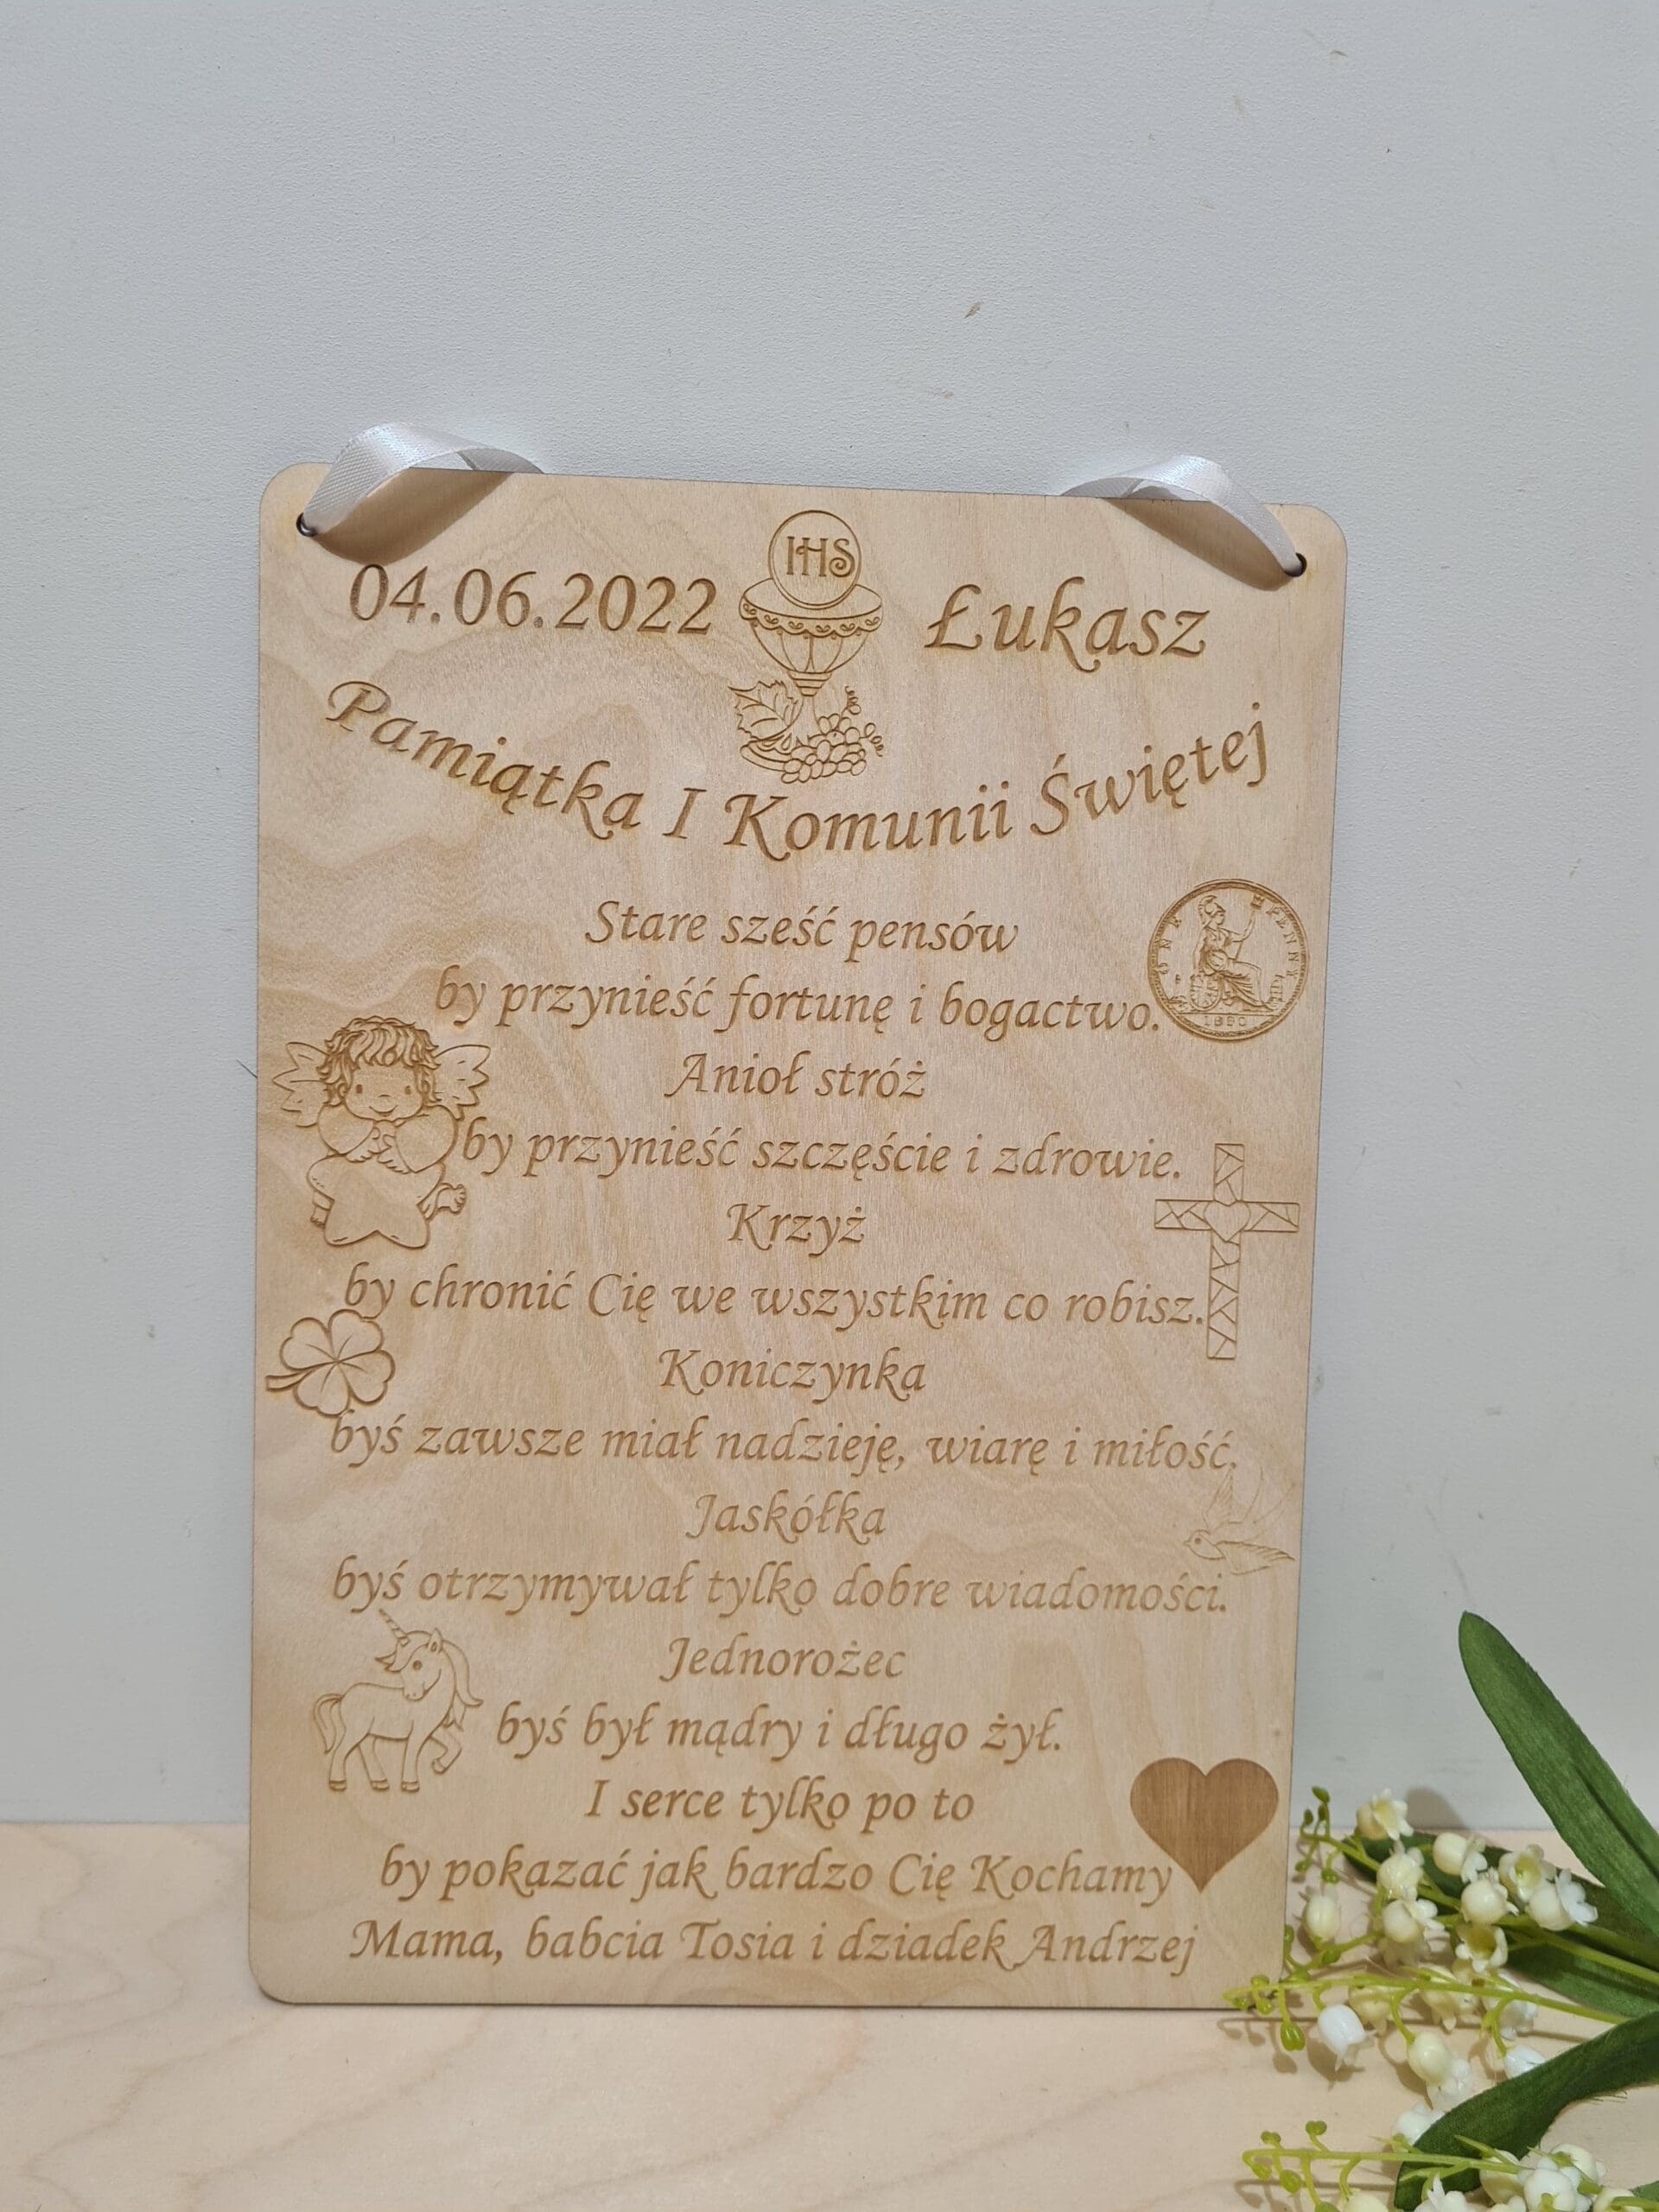 04.06.2022
IHS
Łukasz
Pamiątka I Komunii Świętej
Stare sześć pensów
by przynieść fortunę i bogactwo.
ONE PENNY
Anioł stróż
by przynieść szczęście i zdrowie.
Krzyż
by chronić Cię we wszystkim co robisz.
Koniczynka
byś zawsze miał nadzieję, wiarę i miłość.
Jaskółka
byś otrzymywał tylko dobre wiadomości.
Jednorożec
byś był mądry i długo żył.
I serce tylko po to
by pokazać jak bardzo Cię Kochamy
Mama, babcia Tosia i dziadek Andrzej